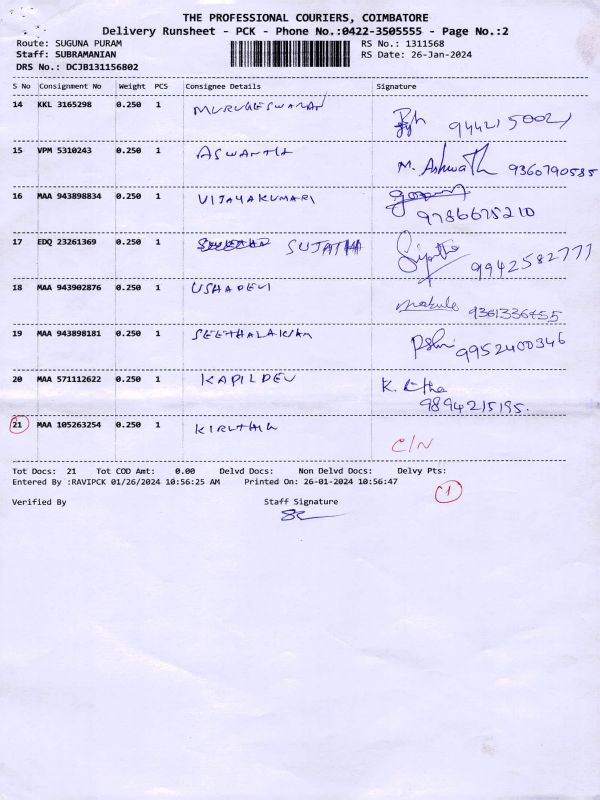 THE PROFESSIONAL COURIERS, COIMBATORE
Delivery Runsheet - PCK - Phone No.:0422-3505555 - Page No.:2
Route: SUGUNA PURAM RS No.: 1311568
Staff: SUBRAMANIAN RS Date: 26-Jan-2024
DRS No.: DCJB131156802
S No Consignment No Weight PCS Consignee Details Signature
14 KKL 3165298 0.250 1 MURUGESWARAN
15 VPM 5310243 0.250 1 ASWANTH M. Ashwath 9360790585
16 MAA 943898834 0.250 1 VIJAYAKUMARI
9786675210
17 EDQ 23261369 0.250 1 SUJATHA 9942582777
18 MAA 943902876 0.250 1 USHADEVI 9361336455
19 MAA 943898181 0.250 1 SEETHALAKSHMI 9952400346
20 MAA 571112622 0.250 1 KAPILDEV K.
9894215195.
21 MAA 105263254 0.250 1 KIRUTHIKA
C/N
Tot Docs: 21 Tot COD Amt: 0.00 Delvd Docs: Non Delvd Docs: Delvy Pts:
Entered By :RAVIPCK 01/26/2024 10:56:25 AM Printed On: 26-01-2024 10:56:47
1
Verified By Staff Signature